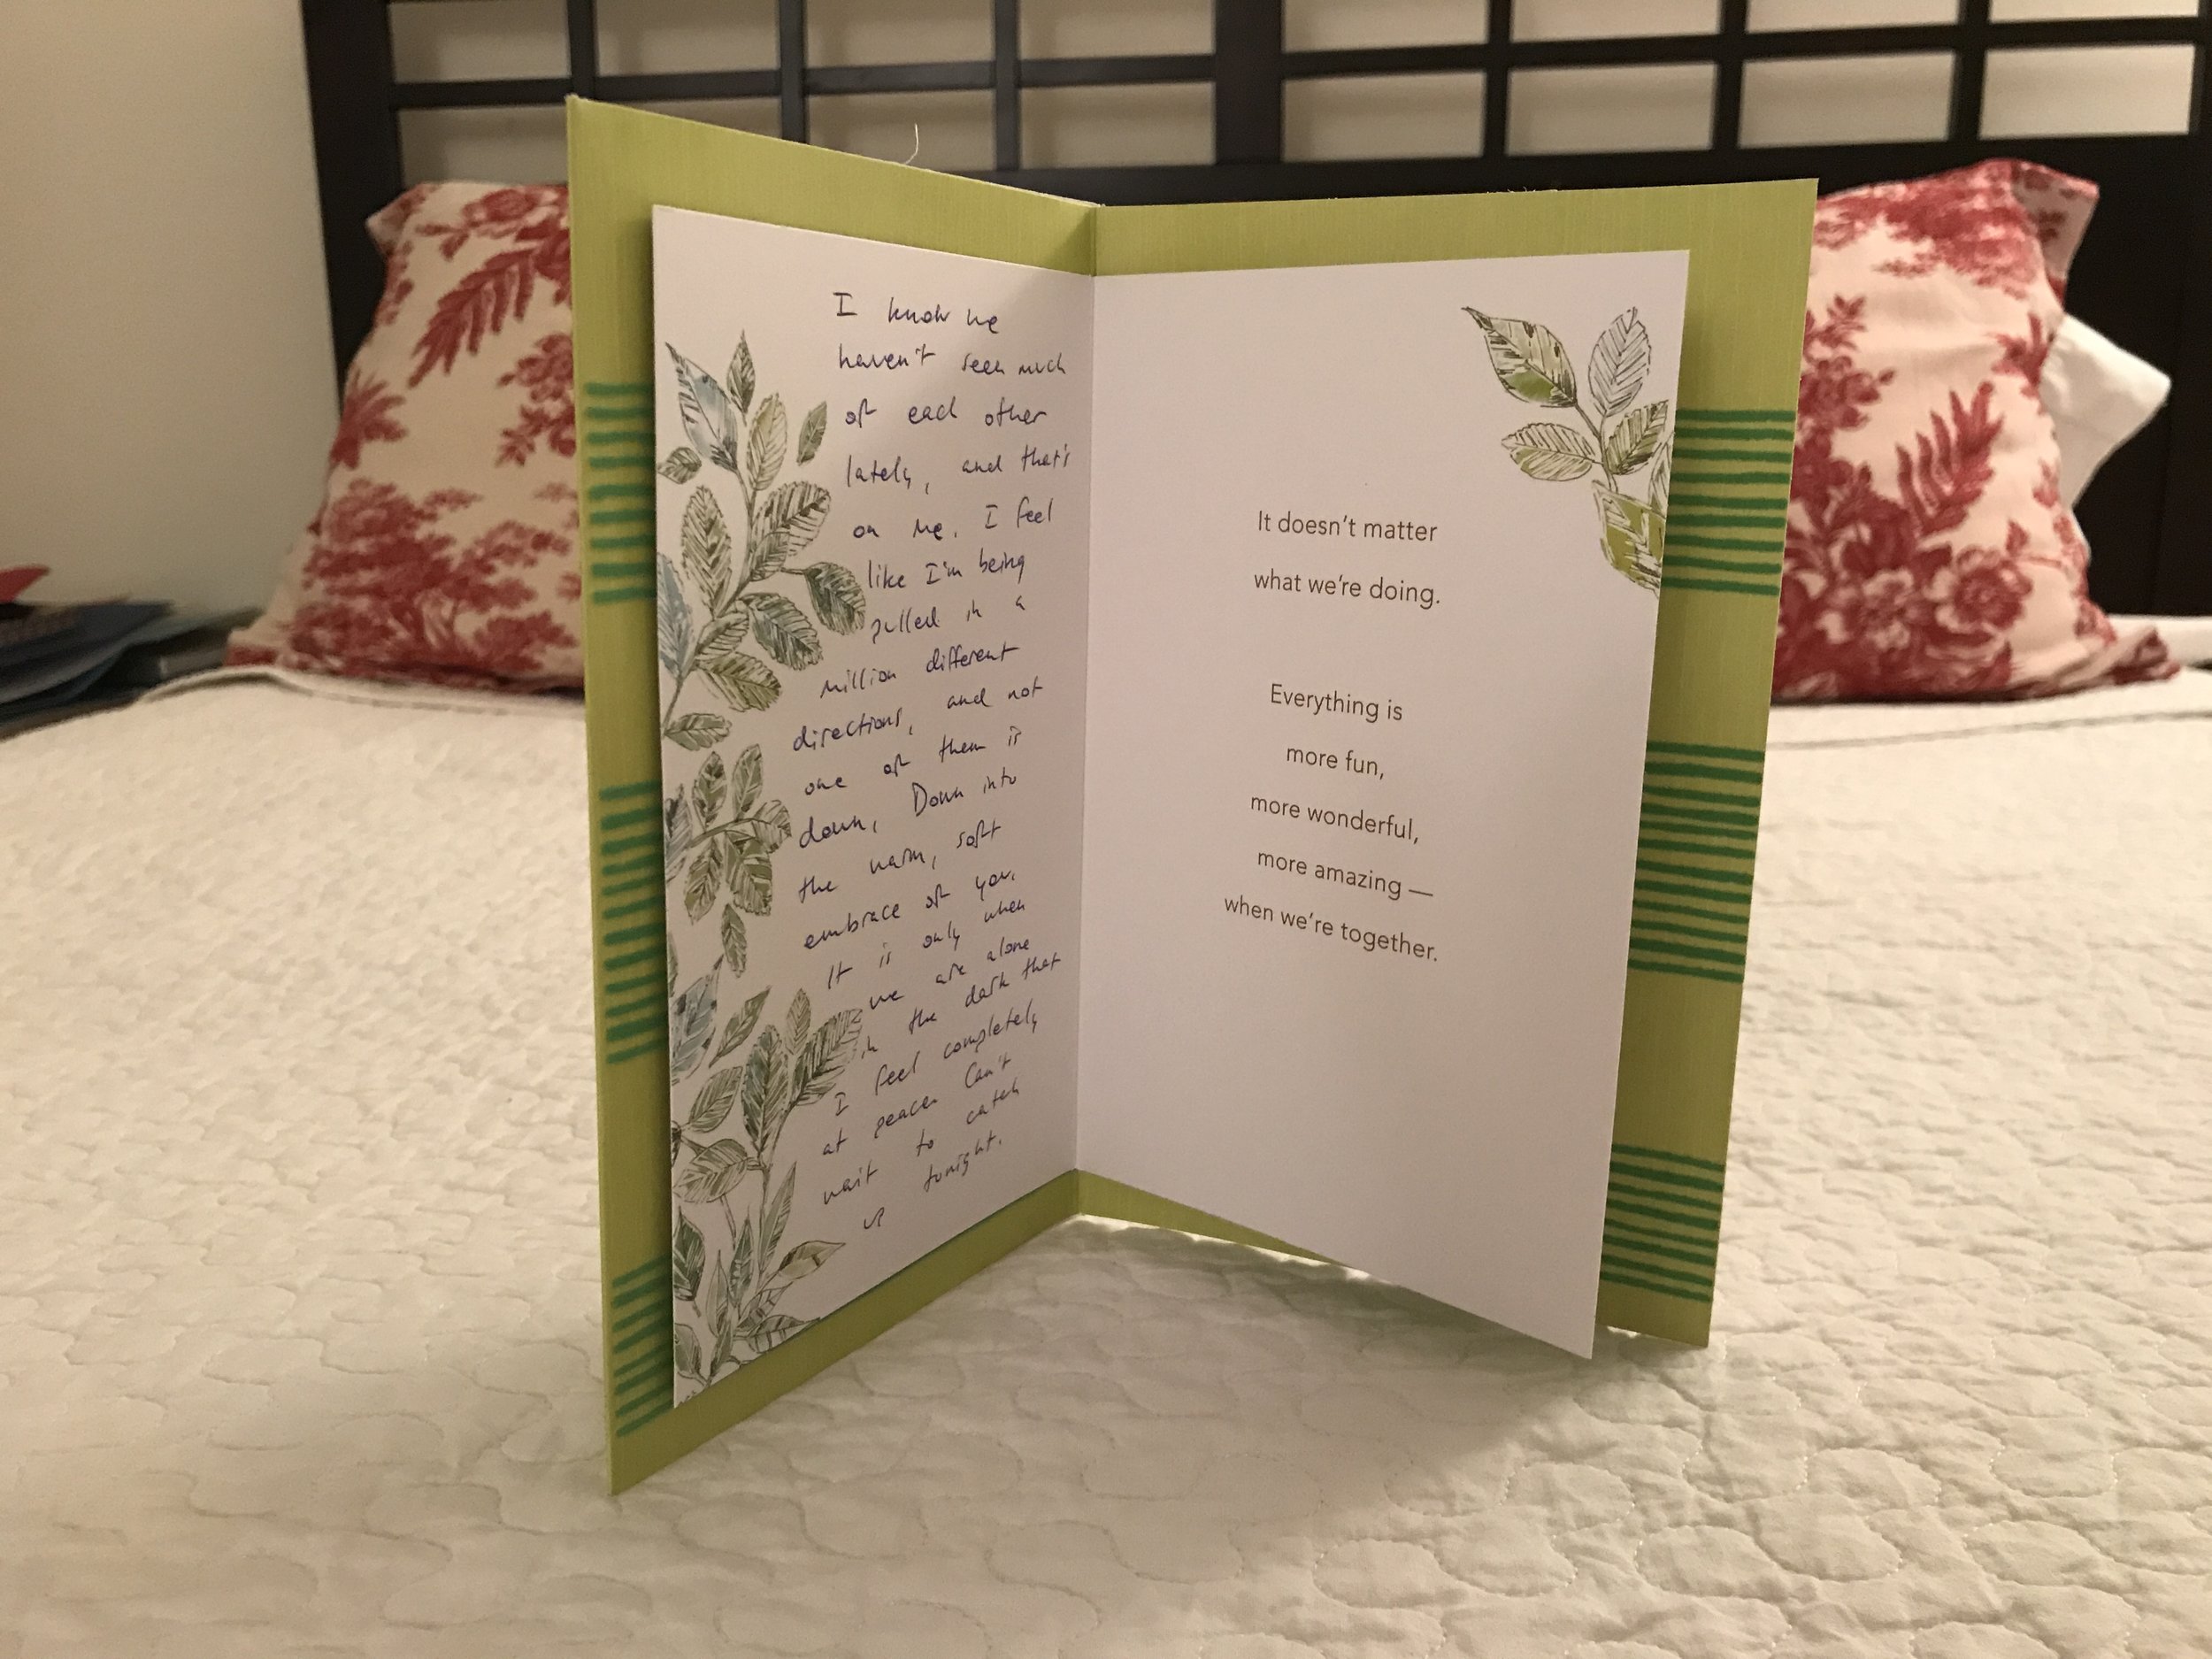 I know we
haven't seen much
of each other
lately, and that's
on me. I feel
like I'm being
pulled in a
million different
directions, and not
one of them is
down. Down into
the warm, soft
embrace of you.
It is only when
we are alone
in the dark that
I feel completely
at peace. Can't
wait to catch
up tonight.
It doesn't matter
what we're doing.
Everything is
more fun,
more wonderful,
more amazing —
when we're together.